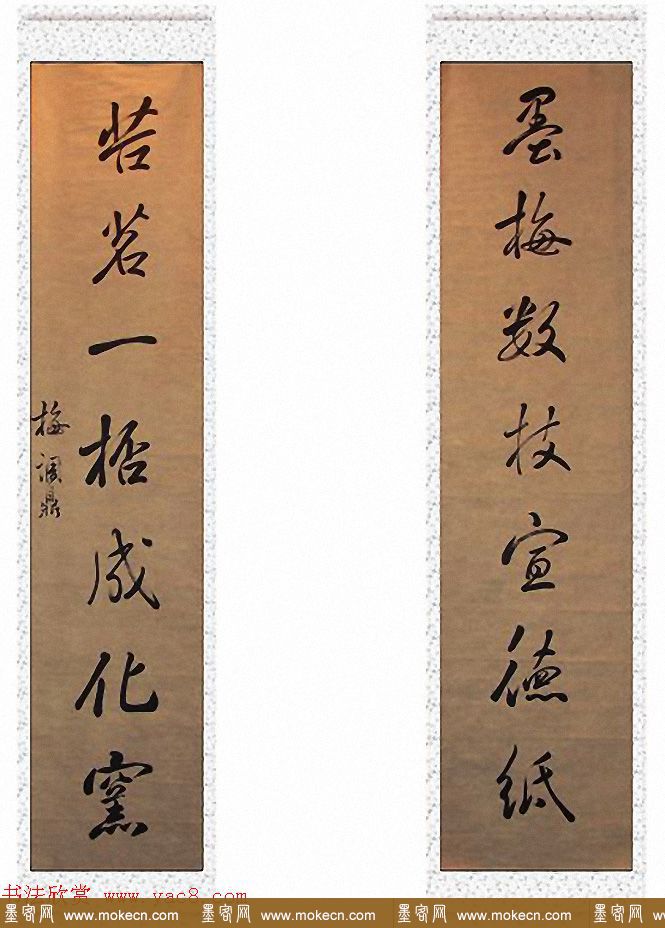 墨梅数枝宣德紙
苦茗一桮成化窯
梅調鼎
书法欣赏 www.yac8.com
墨客网 www.mokecn.com 墨客网 www.mokecn.com 墨客网 www.mokecn.com 墨